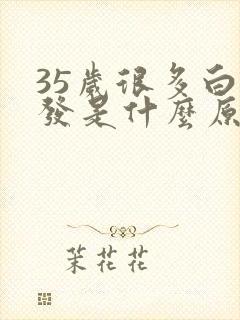 35歲很多白
發是什麼原
茉花花